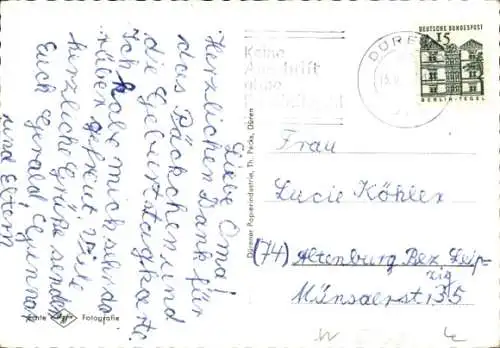 Liebe Oma!
Herzlichen Dank für
das Päckchen und
die Geburtstagkarte.
Ich habe mich sehr da
rüber gefreut. Viele
herzliche Grüße sendet
Euch Gerald,
und Eltern
Frau
Lucie Köhler
(74) Altenburg Bez. Leip-
zig
Münsaerstr 35
DEUTSCHE BUNDESPOST
15
BERLIN-TEGEL
DÜREN
Keine
Anschrift
ohne
Dürener Papierindustrie, Th. Pecks, Düren
Echte Fotografie